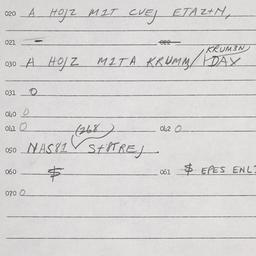 020 A HOJZ MIT CVEJ ETAZ+N,
021 -
030 A HOJZ MITA KRUMM/ KRUMEN DAX
031 0
040 0
041 0 062 0
050 NAS81 (268) S+8TREJ
060 $ 061 $ EPES ENL?
070 0